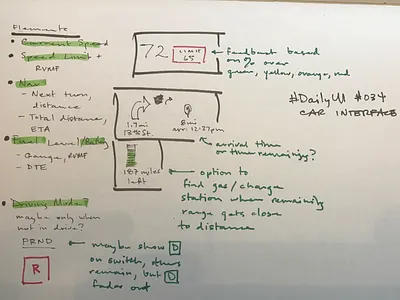 Elements
• Current Speed
• Speed Limit +
RVMF
• Nav
- Next turn,
distance
- Total distance,
ETA
• Fuel Level/Batt
- Gauge, RVMF
- DTE
• Driving Mode
maybe only when
not in drive?
PRND
R
72
LIMIT
65
1.7mi
13th St.
8mi
arr. 12:27pm
187 miles
left
Feedback based
on % over
green, yellow, orange, red
#DailyUI #034
CAR INTERFACE
arrival time
or time remaining?
option to
find gas/charge
station when remaining
range gets close
to distance
maybe show D
on switch, others
remain, but D
fades out